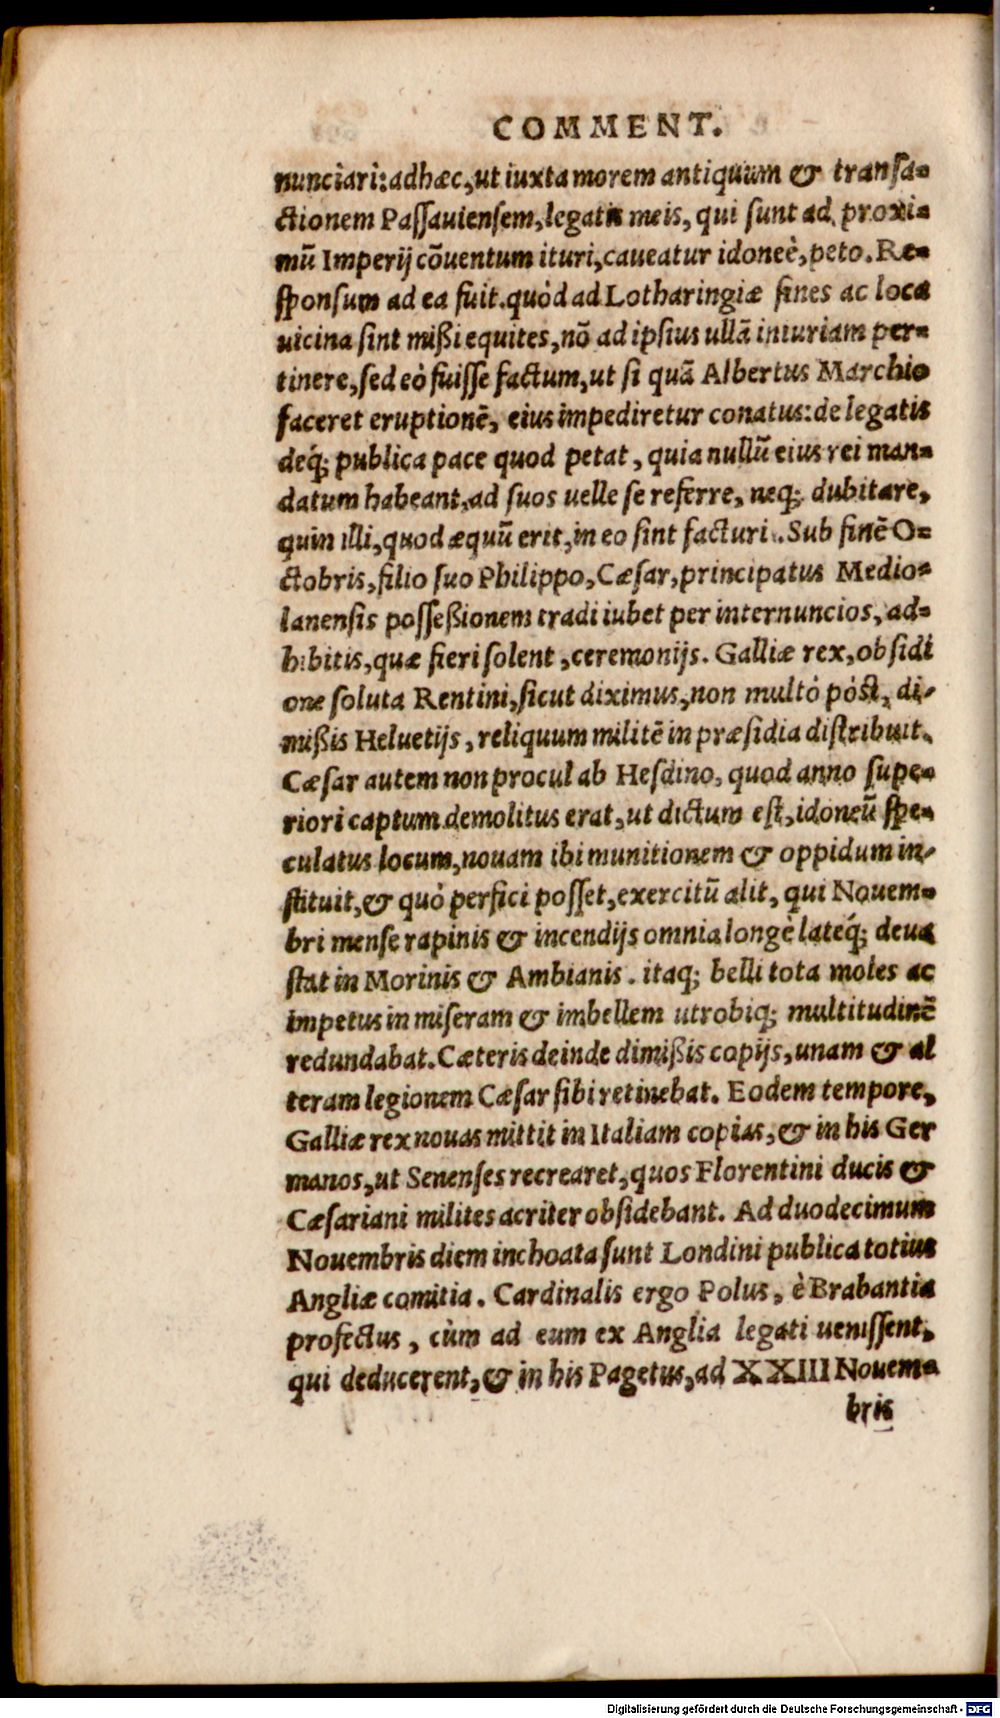 COMMENT.
nunciari: adhæc, ut iuxta morem antiquum & transa-
ctionem Passauiensem, legatis meis, qui sunt ad proxi-
mũ Imperij cõuentum ituri, caueatur idoneè, peto. Re-
sponsum ad ea fuit. quòd ad Lotharingiæ fines ac loca
uicina sint mißi equites, nõ ad ipsius ullã iniuriam per-
tinere, sed eò fuisse factum, ut si quã Albertus Marchio
faceret eruptionẽ, eius impediretur conatus: de legatis
deq́; publica pace quod petat, quia nullũ eius rei man-
datum habeant, ad suos uelle se referre, neq; dubitare,
quin illi, quod æquũ erit, in eo sint facturi. Sub finẽ O-
ctobris, filio suo Philippo, Cæsar, principatus Medio-
lanensis posseßionem tradi iubet per internuncios, ad-
hibitis, quæ fieri solent, ceremonijs. Galliæ rex, obsidi
one soluta Rentini, sicut diximus, non multò pòst, di-
mißis Heluetijs, reliquum militẽ in præsidia distribuit.
Cæsar autem non procul ab Hesdino, quod anno supe-
riori captum demolitus erat, ut dictum est, idoneũ spe-
culatus locum, nouam ibi munitionem & oppidum in-
stituit, & quò perfici posset, exercitũ alit, qui Nouem-
bri mense rapinis & incendijs omnia longè lateq́; deua
stat in Morinis & Ambianis. itaq; belli tota moles ac
impetus in miseram & imbellem utrobiq; multitudinẽ
redundabat. Cæteris deinde dimißis copijs, unam & al
teram legionem Cæsar sibi retinebat. Eodem tempore,
Galliæ rex nouas mittit in Italiam copias, & in his Ger
manos, ut Senenses recrearet, quos Florentini ducis &
Cæsariani milites acriter obsidebant. Ad duodecimum
Nouembris diem inchoata sunt Londini publica totius
Angliæ comitia. Cardinalis ergo Polus, è Brabantia
profectus, cùm ad eum ex Anglia legati uenissent,
qui deducerent, & in his Pagetus, ad XXIII Nouem-
bris
Digitalisierung gefördert durch die Deutsche Forschungsgemeinschaft - DFG